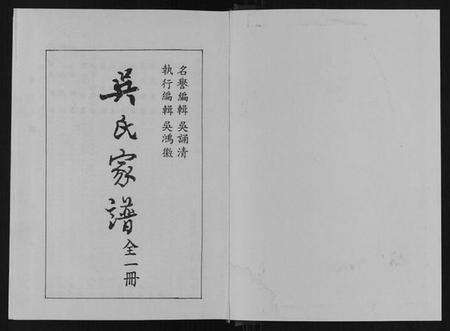 名譽編輯 吳誦清
執行編輯 吳鴻徽
吳氏家譜 全一冊